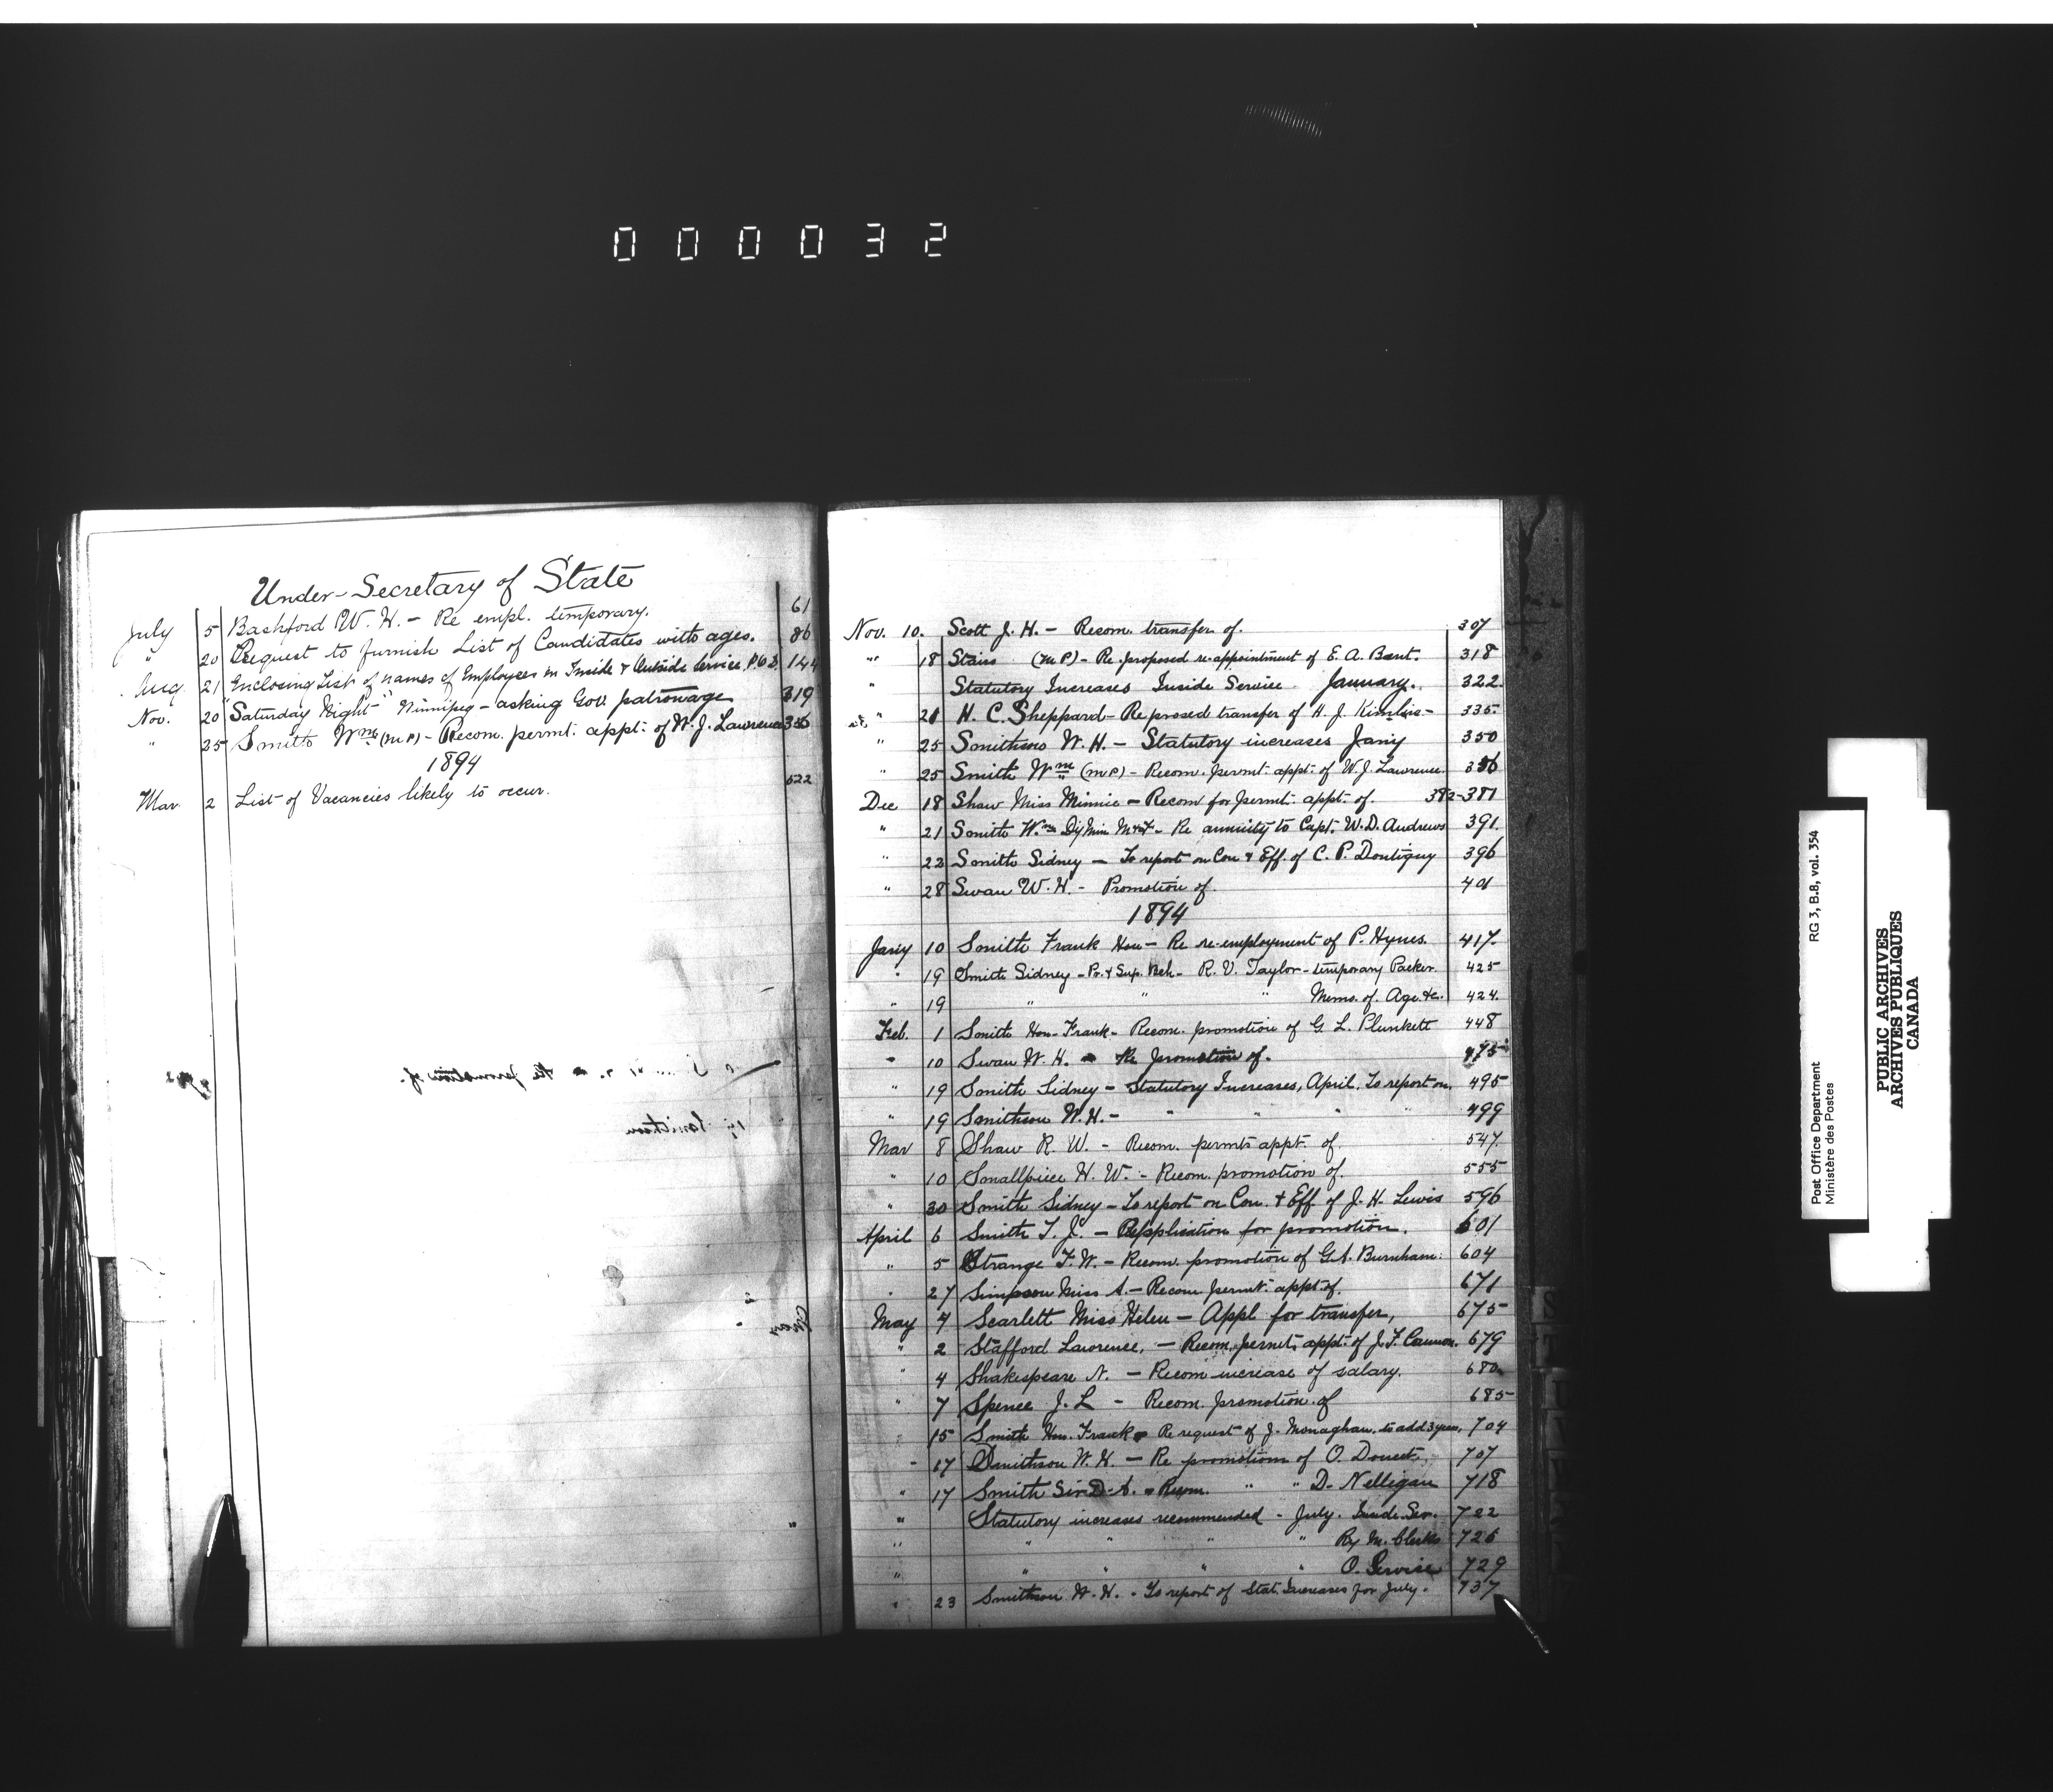 000032
Under-Secretary of State
July 5 Bashford W. H. - Re empl. temporary. 61
" 20 Request to furnish List of Candidates with ages. 86
Aug. 21 Enclosing List of names of Employees in Inside & Outside Service, P.O.D. 144
Nov. 20 "Saturday Night" Winnipeg - asking Gov. patronage 319
" 25 Smith Wm (M.P.) - Recom. permt. appt. of W. J. Lawrence 356
1894
Mar. 2 List of Vacancies likely to occur. 522
Nov. 10. Scott J. H. - Recom. transfer of. 307
" 18 Stairs (M.P.) - Re proposed re-appointment of E. A. Bent. 318
" Statutory Increases Inside Service January. 322
" 21 H. C. Sheppard - Re prosed transfer of H. J. 335
" 25 Smithson W. H. - Statutory increases Jany 350
" 25 Smith Wm (M.P.) - Recom. permt. appt. of W. J. Lawrence. 356
Dec 18 Shaw Miss Minnie - Recom for permt. appt. of. 382-387
" 21 Smith Wm Dy Min M&F - Re annuity to Capt. W. D. Andrews 391.
" 22 Smith Sidney - To report on Con & Eff. of C. P. Doutigny 396
" 28 Swan W. H. - Promotion of. 401
1894
Jany 10 Smith Frank Hon - Re re-employment of P. Hynes. 417.
" 19 Smith Sidney - Pr. & Sup. Bch - R. V. Taylor - temporary Packer. 425
" 19 " " " Memo. of Age &c. 424.
Feb. 1 Smith Hon. Frank - Recom. promotion of G. L. Plunkett 448
" 10 Swan W. H. - Re promotion of. 475
" 19 Smith Sidney - Statutory Increases, April. To report on. 495
" 19 Smithson W. H. - " " " " 499
Mar 8 Shaw R. W. - Recom. permt appt. of. 547.
" 10 Smallpiece H. W. - Recom. promotion of. 555
" 30 Smith Sidney - To report on Con. & Eff. of J. H. Lewis 596
April 6 Smith T. J. - Re Application for promotion. 601
" 5 Strange F. W. - Recom. promotion of G. A. Burnham. 604
" 27 Simpson Miss A. - Recom permt. appt. of. 671
May 4 Scarlett Miss Helen - Appl for transfer, 675
" 2 Stafford Lawrence, - Recom. permt. appt. of J. F. 679
" 4 Shakespeare N. - Recom increase of salary. 680
" 7 Spence J. L - Recom. promotion of 685
" 15 Smith Hon. Frank - Re request of J. Monaghan, to add 3 years, 704
" 17 Smithson W. H. - Re promotion of O. Doucet, 707
" 17 Smith Sir D. A. - Recom. " " D. Nelligan 718
" Statutory increases recommended - July. Inside Ser. 722
" " " " " Ry M. Clerks 726
" " " " " O. Service 729
" 23 Smithson W. H. - To report of Stat. Increases for July. 737
Post Office Department
Ministère des Postes
RG 3, B.8, vol. 354
PUBLIC ARCHIVES
ARCHIVES PUBLIQUES
CANADA